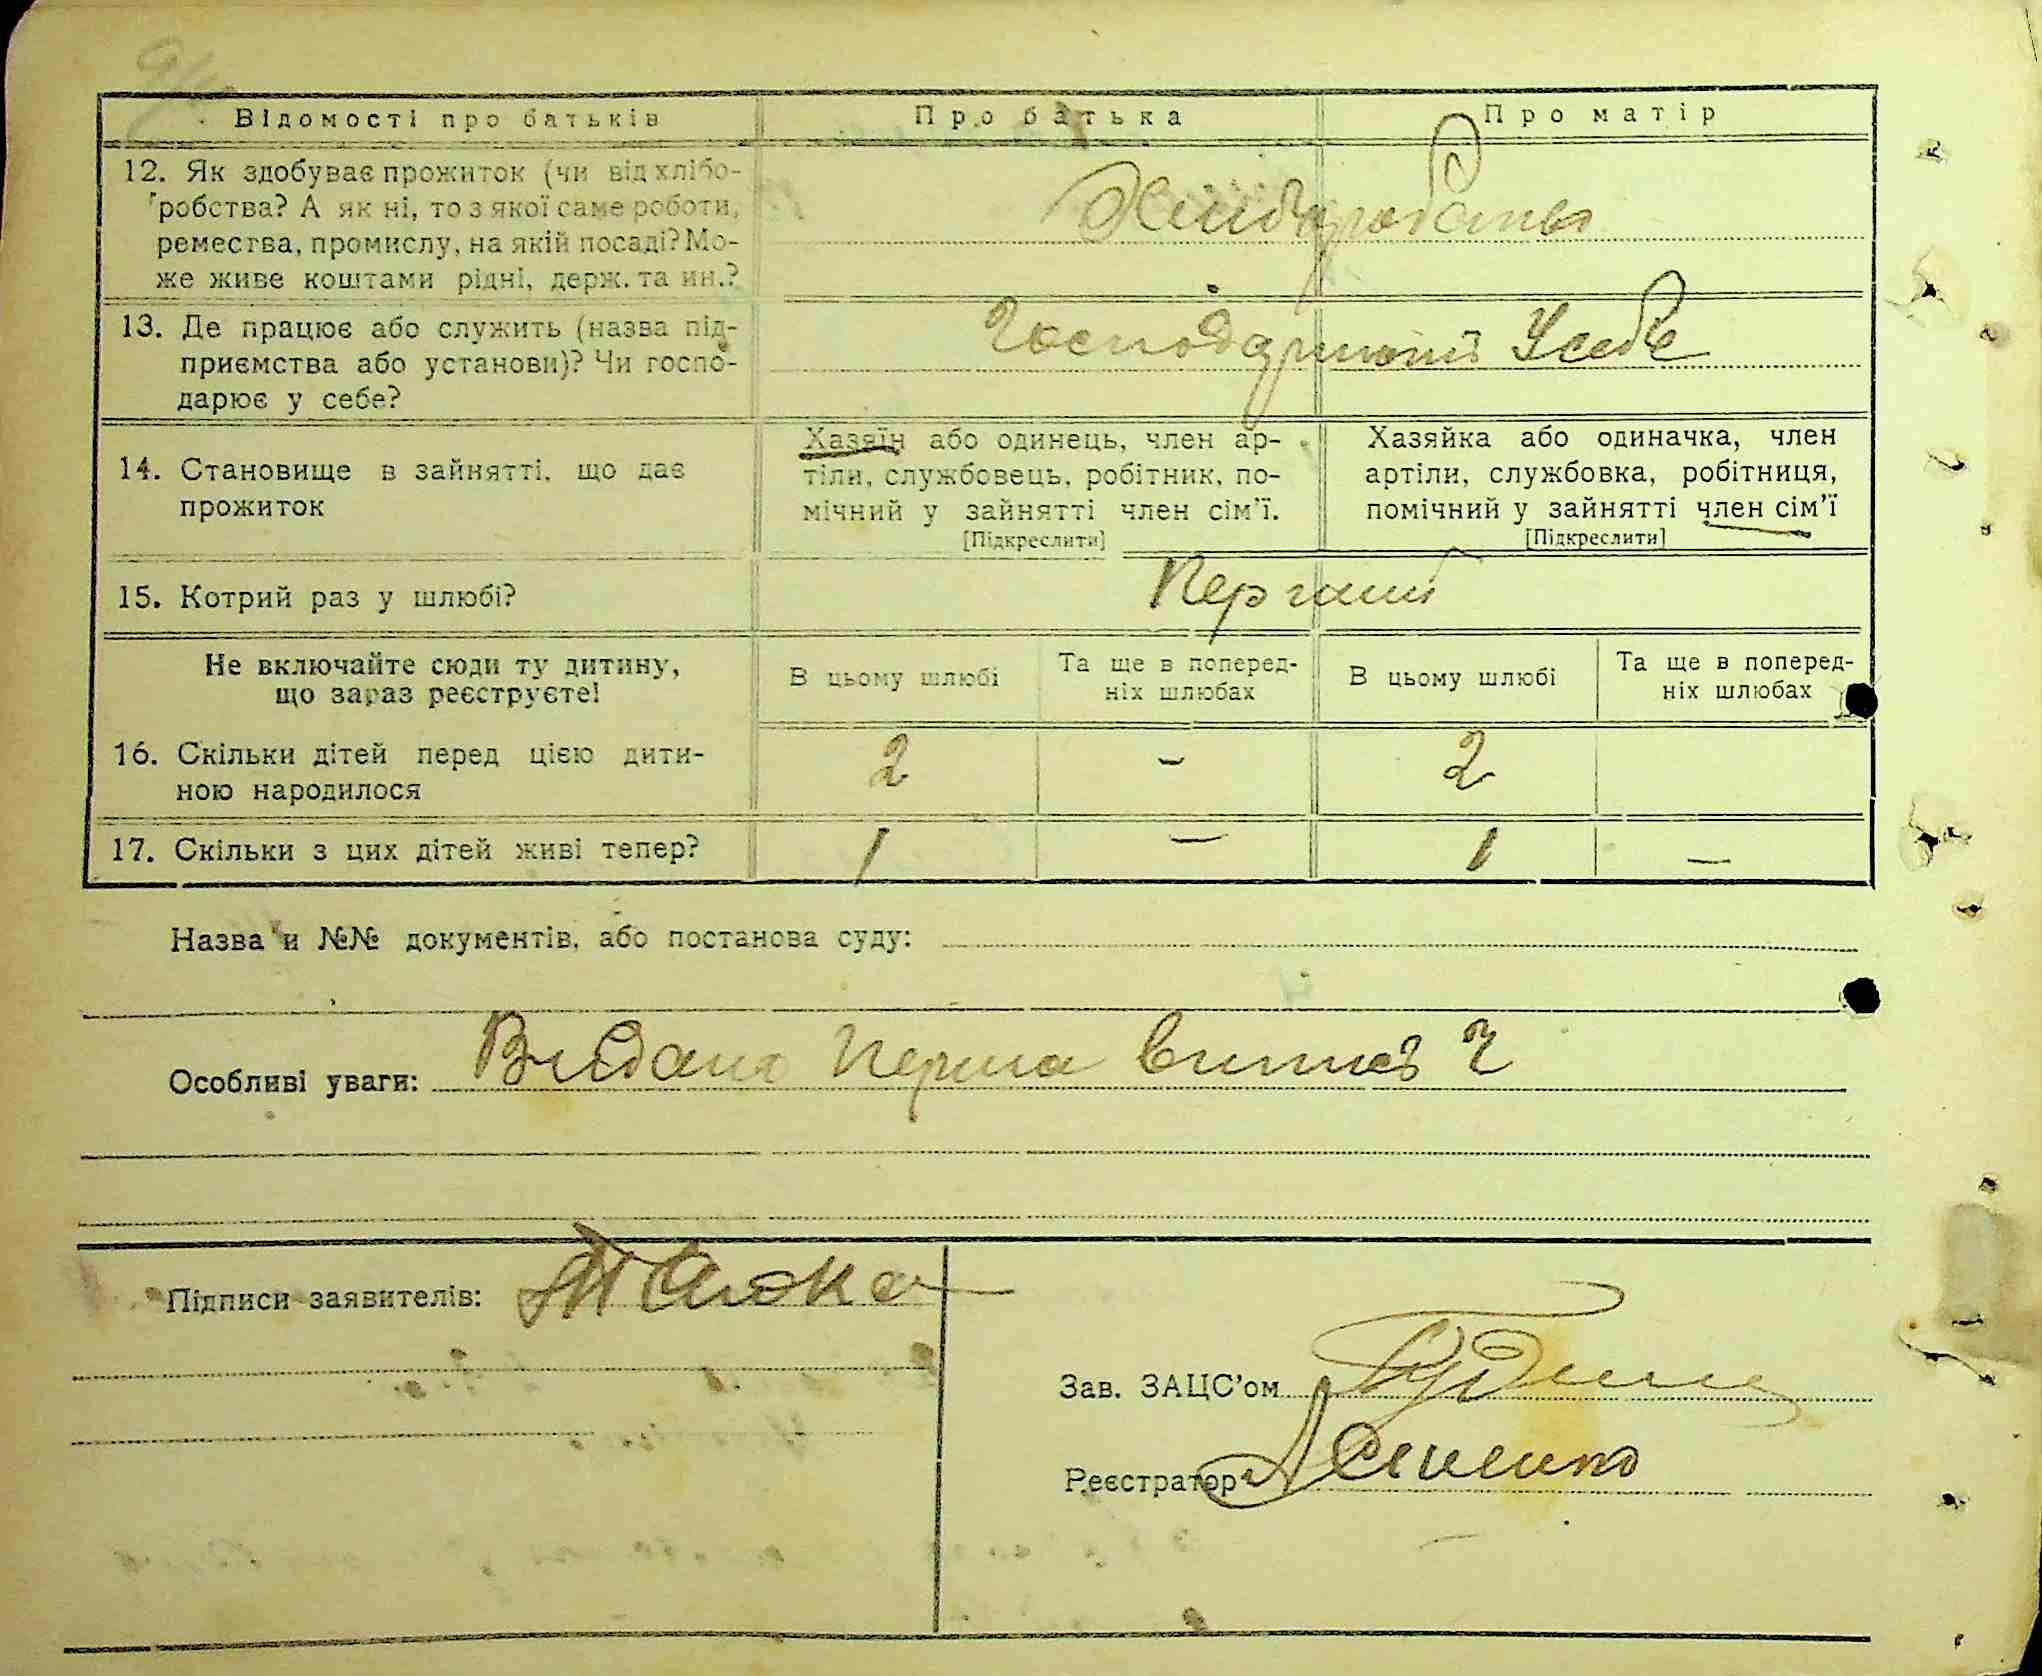 Відомості про батьків
Про батька
Про матір
12. Як здобуває прожиток (чи від хлібо-
робства? А як ні, то з якої саме роботи,
ремества, промислу, на якій посаді? Мо-
же живе коштами рідні, держ. та ин.?
13. Де працює або служить (назва під-
приємства або установи)? Чи госпо-
дарює у себе?
У себе
14. Становище в зайнятті, що дає
прожиток
Хазяїн або одинець, член ар-
тіли, службовець, робітник, по-
мічний у зайнятті член сім'ї.
[Підкреслити]
Хазяйка або одиначка, член
артіли, службовка, робітниця,
помічний у зайнятті член сім'ї
[Підкреслити]
15. Котрий раз у шлюбі?
Перший
Не включайте сюди ту дитину,
що зараз реєструєте!
В цьому шлюбі
Та ще в поперед-
ніх шлюбах
В цьому шлюбі
Та ще в поперед-
ніх шлюбах
16. Скільки дітей перед цією дити-
ною народилося
2
-
2
17. Скільки з цих дітей живі тепер?
1
—
1
—
Назва и №№ документів, або постанова суду:
Особливі уваги: Видана перша
Підписи заявителів:
Зав. ЗАЦС'ом
Реєстратор